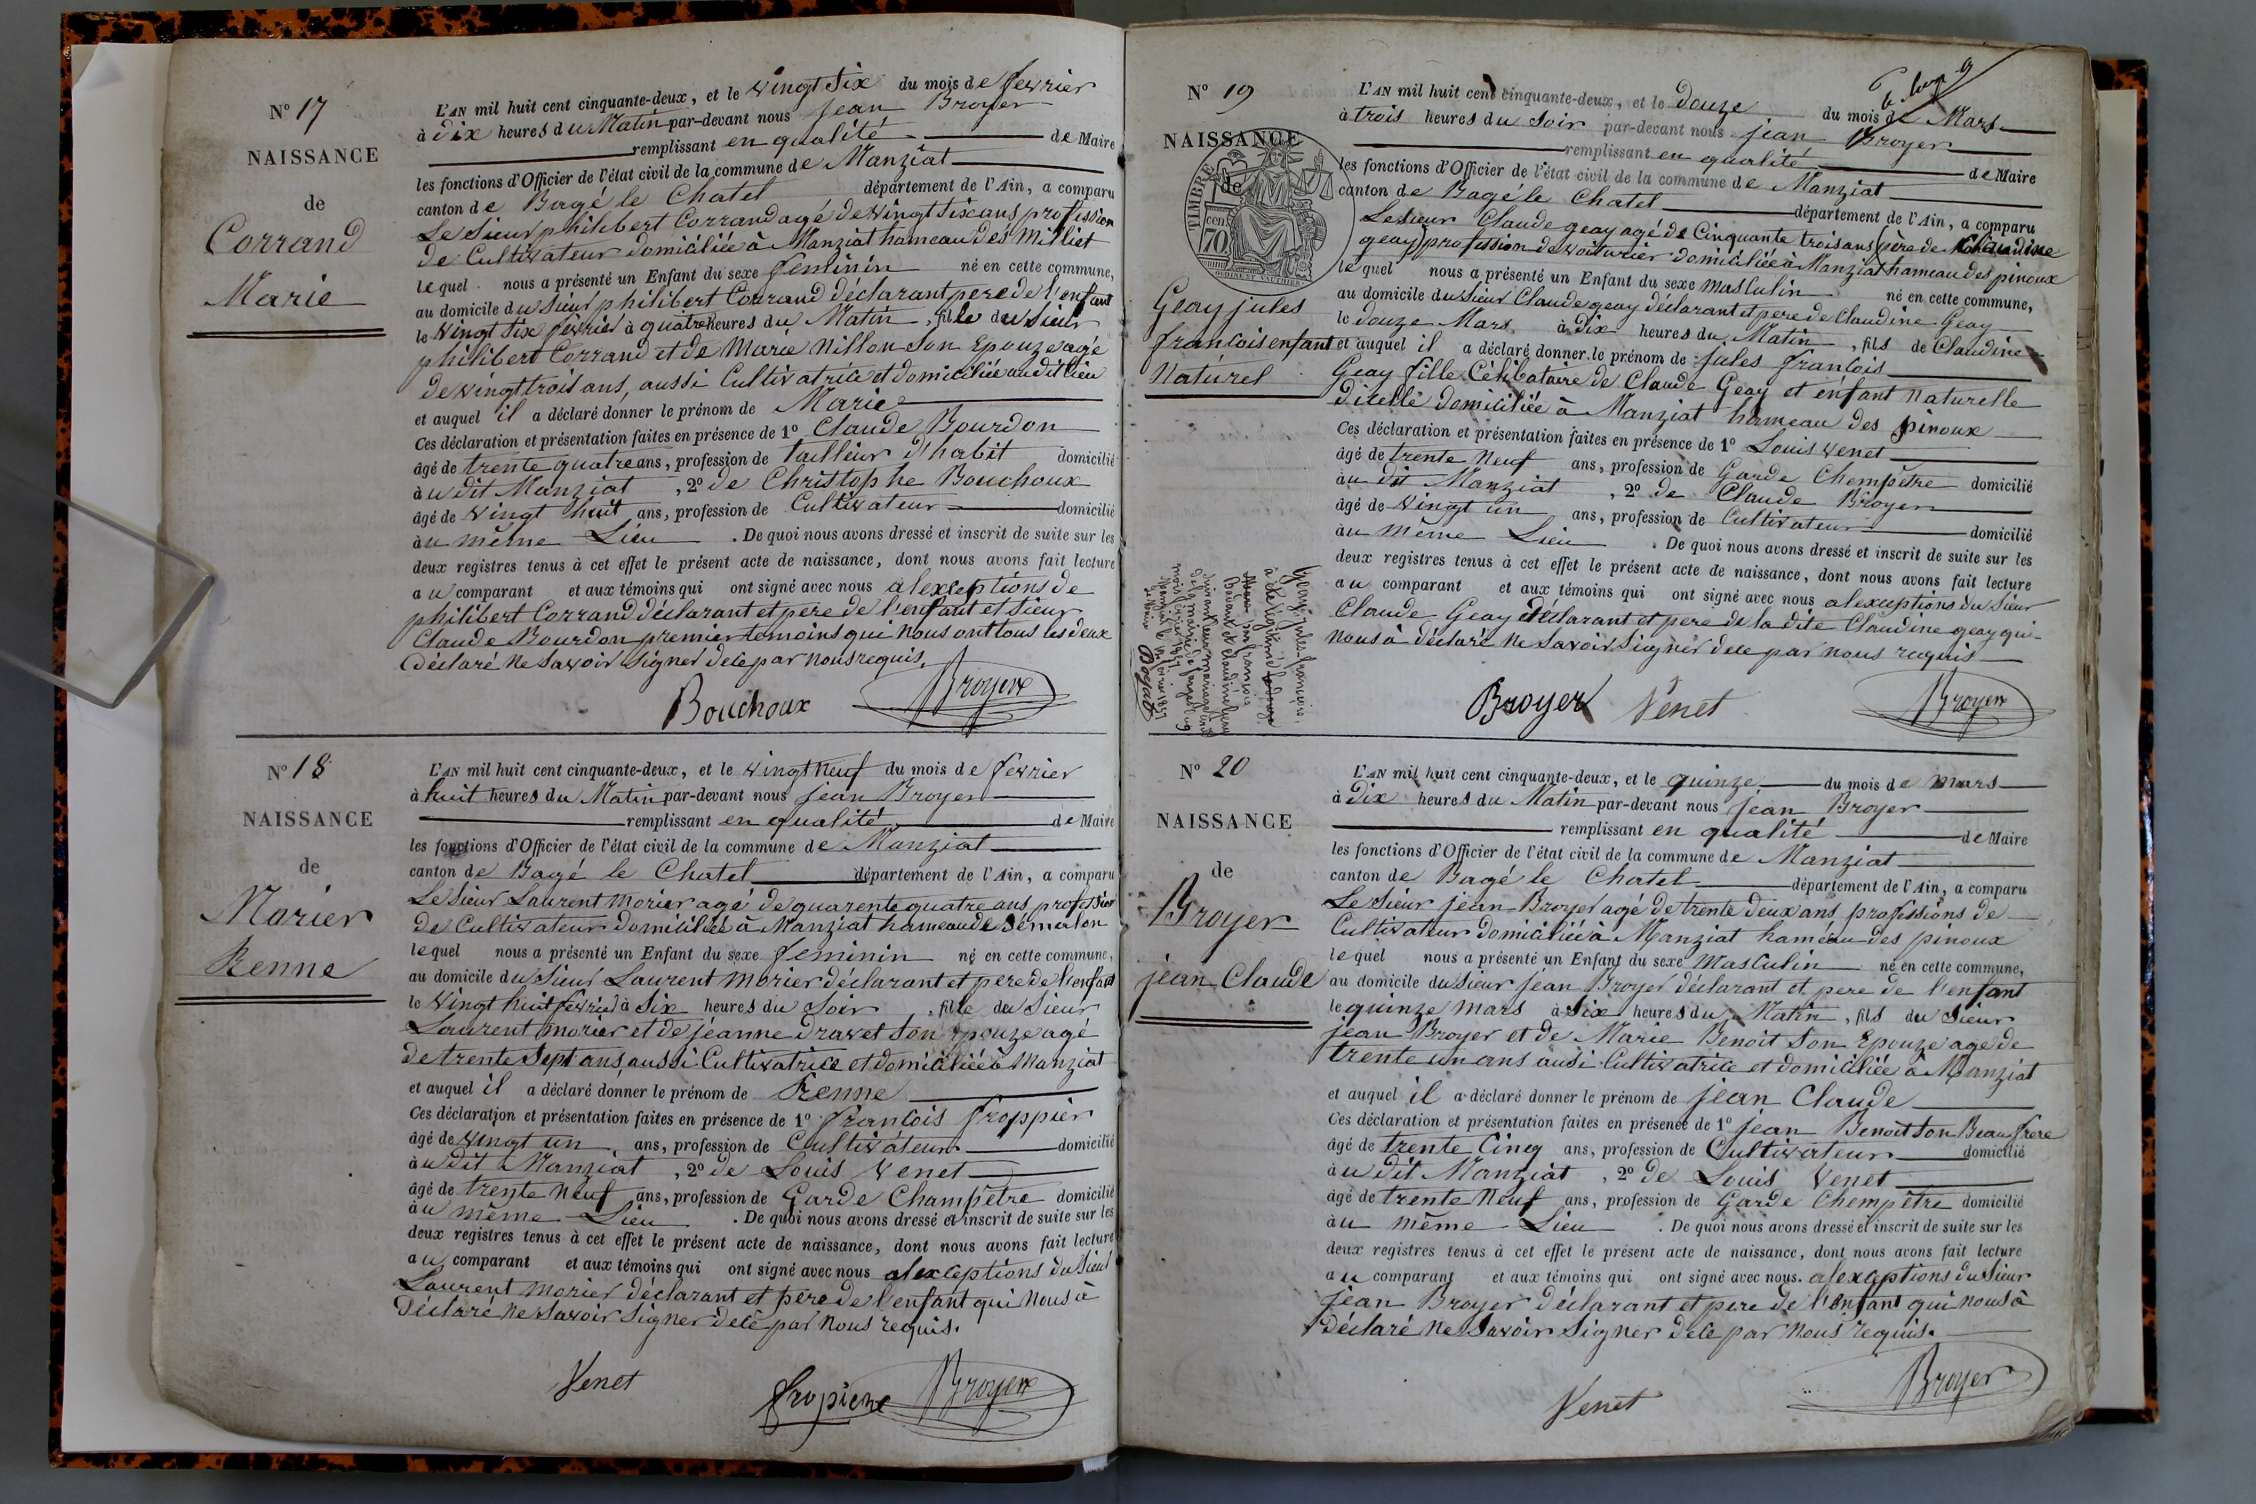 N° 17
NAISSANCE
de
Corrand
Marie
L'AN mil huit cent cinquante-deux, et le vingt six du mois de fevrier
à dix heures du Matin par-devant nous jean Broyer
remplissant en qualité de Maire
les fonctions d'Officier de l'état civil de la commune de Manziat
canton de Bagé le Chatel département de l'Ain, a comparu
Le Sieur philibert Corrand agé de vingt six ans profession
de Cultivateur domiciliée à Manziat hameau des Milliet
lequel nous a présenté un Enfant du sexe feminin né en cette commune,
au domicile du Sieur philibert Corrand déclarant pere de l'enfant
le vingt six fevrier à quatre heures du Matin, fille du Sieur
philibert Corrand et de Marie Nillon son Epouze agé
de vingt trois ans, aussi Cultivatrice et domiciliée au dit lieu
et auquel il a déclaré donner le prénom de Marie
Ces déclaration et présentation faites en présence de 1° Claude Bourdon
âgé de trente quatre ans, profession de tailleur d'habit domicilié
àu dit Manziat, 2° de Christophe Bouchoux
âgé de vingt huit ans, profession de Cultivateur domicilié
àu même Lieu. De quoi nous avons dressé et inscrit de suite sur les
deux registres tenus à cet effet le présent acte de naissance, dont nous avons fait lecture
au comparant et aux témoins qui ont signé avec nous alexceptions de
philibert Corrand déclarant et pere de l'enfant et sieur
Claude Bourdon premier temoins qui nous ont tous les deux
déclaré ne savoir signer dece par nous requis.
Bouchoux Broyer
N° 18
NAISSANCE
de
Morier
Renne
L'AN mil huit cent cinquante-deux, et le vingt neuf du mois de fevrier
à huit heures du Matin par-devant nous jean Broyer
remplissant en qualité de Maire
les fonctions d'Officier de l'état civil de la commune de Manziat
canton de Bagé le Chatel département de l'Ain, a comparu
Le Sieur Laurent morier agé de quarente quatre ans profession
de Cultivateur domiciliée à Manziat hameau de Semalon
lequel nous a présenté un Enfant du sexe feminin né en cette commune,
au domicile du Sieur Laurent morier déclarant et pere de l'enfant
le vingt huit fevrier à six heures du Soir, fille du Sieur
Laurent morier et de jeanne dravet son epouze agé
de trente sept ans aussi Cultivatrice et domiciliée à Manziat
et auquel il a déclaré donner le prénom de Renne
Ces déclaration et présentation faites en présence de 1° francois froppier
âgé de vingt un ans, profession de Cultivateur domicilié
àu dit Manziat, 2° de Louis Venet
âgé de trente neuf ans, profession de Garde Champêtre domicilié
àu même Lieu. De quoi nous avons dressé et inscrit de suite sur les
deux registres tenus à cet effet le présent acte de naissance, dont nous avons fait lecture
au comparant et aux témoins qui ont signé avec nous alexceptions du Sieur
Laurent morier déclarant et père de l'enfant qui nous à
déclaré ne savoir signer dece par nous requis.
Venet fropier Broyer
N° 19
NAISSANCE
de
TIMBRE
cen
70
Geay jules
francois enfant
Naturel
L'AN mil huit cent cinquante-deux, et le douze du mois de Mars
à trois heures du soir par-devant nous jean Broyer
remplissant en qualité de Maire
les fonctions d'Officier de l'état civil de la commune de Manziat
canton de Bagé le Chatel département de l'Ain, a comparu
Le sieur Claude geay agé de Cinquante trois ans (père de Claudine
geay) profession de voiturier domiciliée à Manziat hameau des pinoux
lequel nous a présenté un Enfant du sexe masculin né en cette commune,
au domicile du sieur Claude geay déclarant et pere de Claudine Geay
le douze Mars à dix heures du Matin, fils de Claudine
et auquel il a déclaré donner le prénom de jules francois
Geay fille Célibataire de Claude Geay et enfant naturelle
dicelle domiciliée à Manziat hameau des pinoux
Ces déclaration et présentation faites en présence de 1° Louis Venet
âgé de trente Neuf ans, profession de Garde Chempêtre domicilié
àu dit Manziat, 2° de Claude Broyer
âgé de vingt un ans, profession de Cultivateur domicilié
àu même Lieu. De quoi nous avons dressé et inscrit de suite sur les
deux registres tenus à cet effet le présent acte de naissance, dont nous avons fait lecture
au comparant et aux témoins qui ont signé avec nous alexceptions du Sieur
Claude Geay déclarant et pere de la dite Claudine geay qui
nous à déclaré ne savoir signer dece par nous requis
Geay jules francois,
à été légitimé
par francois
et Claudine Geay
Broyer Venet Broyer
N° 20
NAISSANCE
de
Broyer
jean Claude
L'AN mil huit cent cinquante-deux, et le quinze du mois de mars
à dix heures du Matin par-devant nous jean Broyer
remplissant en qualité de Maire
les fonctions d'Officier de l'état civil de la commune de Manziat
canton de Bagé le Chatel département de l'Ain, a comparu
Le Sieur jean Broyer agé de trente deux ans professions de
Cultivateur domiciliée à Manziat haméau des pinoux
lequel nous a présenté un Enfant du sexe Masculin né en cette commune,
au domicile du sieur jean Broyer déclarant et pere de l'enfant
le quinze mars à Six heures du Matin, fils du Sieur
jean Broyer et de Marie Benoit son Epouze age de
trente un ans ausi Cultivatrice et domiciliée à Manziat
et auquel il a déclaré donner le prénom de jean Claude
Ces déclaration et présentation faites en présence de 1° jean Benoit son Beau frere
âgé de trente Cinq ans, profession de Cultivateur domicilié
àu dit Manziat, 2° de Louis Venet
âgé de trente Neuf ans, profession de Garde Chempêtre domicilié
àu même Lieu. De quoi nous avons dressé et inscrit de suite sur les
deux registres tenus à cet effet le présent acte de naissance, dont nous avons fait lecture
au comparant et aux témoins qui ont signé avec nous. alexceptions du Sieur
jean Broyer déclarant et pere de l'enfant qui nous à
déclaré ne savoir signer dece par nous requis.
Venet Broyer